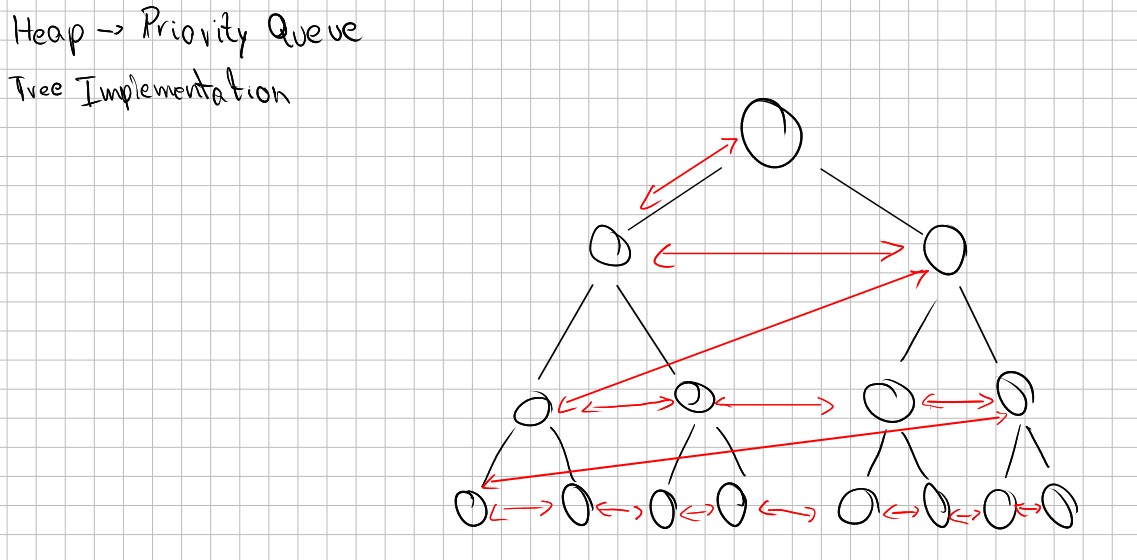 Heap -> Priority Queue
Tree Implementation